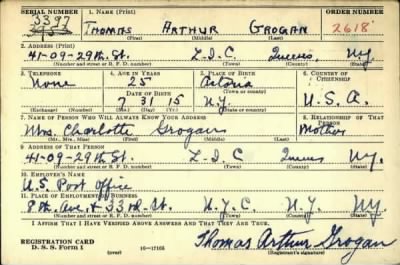 SERIAL NUMBER 1. NAME (Print) ORDER NUMBER
3397
THOMAS ARTHUR GROGAN 2618
(First) (Middle) (Last)
2. ADDRESS (Print)
41-09-29th St. L.I.C. Queens, NY.
(Number and street or R. F. D. number) (Town) (County) (State)
3. TELEPHONE 4. AGE IN YEARS 5. PLACE OF BIRTH 6. COUNTRY OF CITIZENSHIP
None 25 Astoria
(Town or county)
DATE OF BIRTH
7 31 15 N.Y. U.S.A.
(Exchange) (Number) (Mo.) (Day) (Yr.) (State or country)
7. NAME OF PERSON WHO WILL ALWAYS KNOW YOUR ADDRESS 8. RELATIONSHIP OF THAT PERSON
Mrs. Charlotte Grogan Mother
(Mr., Mrs., Miss) (First) (Middle) (Last)
9. ADDRESS OF THAT PERSON
41-09-29th St. L.I.C Queens NY.
(Number and street or R. F. D. number) (Town) (County) (State)
10. EMPLOYER'S NAME
U.S. Post Office
11. PLACE OF EMPLOYMENT OR BUSINESS
8th Ave. & 33rd St. N.Y.C N.Y. NY.
(Number and street or R. F. D. number) (Town) (County) (State)
I AFFIRM THAT I HAVE VERIFIED ABOVE ANSWERS AND THAT THEY ARE TRUE.
REGISTRATION CARD
D. S. S. FORM 1 (over) 16—17105 Thomas Arthur Grogan
(Registrant's signature)